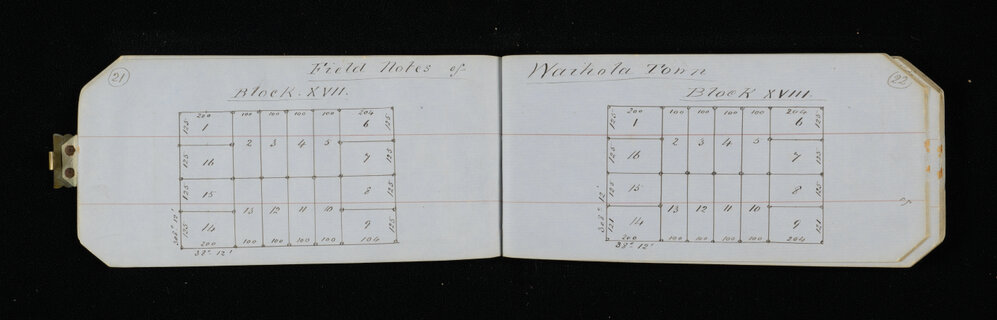 21
Field Notes of
Block. XVII.
200 100 100 100 100 204
125 1 6 125
2 3 4 5
125 16 7 125
125 15 8 125
13 12 11 10
125 14 9 125
308° 12'
200 100 100 100 100 104
38° 12'
22
Waihola Town
Block XVIII.
200 100 100 100 100 204
125 1 6 125
2 3 4 5
125 16 7 125
125 15 8 125
13 12 11 10
121 14 9 121
308° 12'
200 100 100 100 100 204
38° 12'